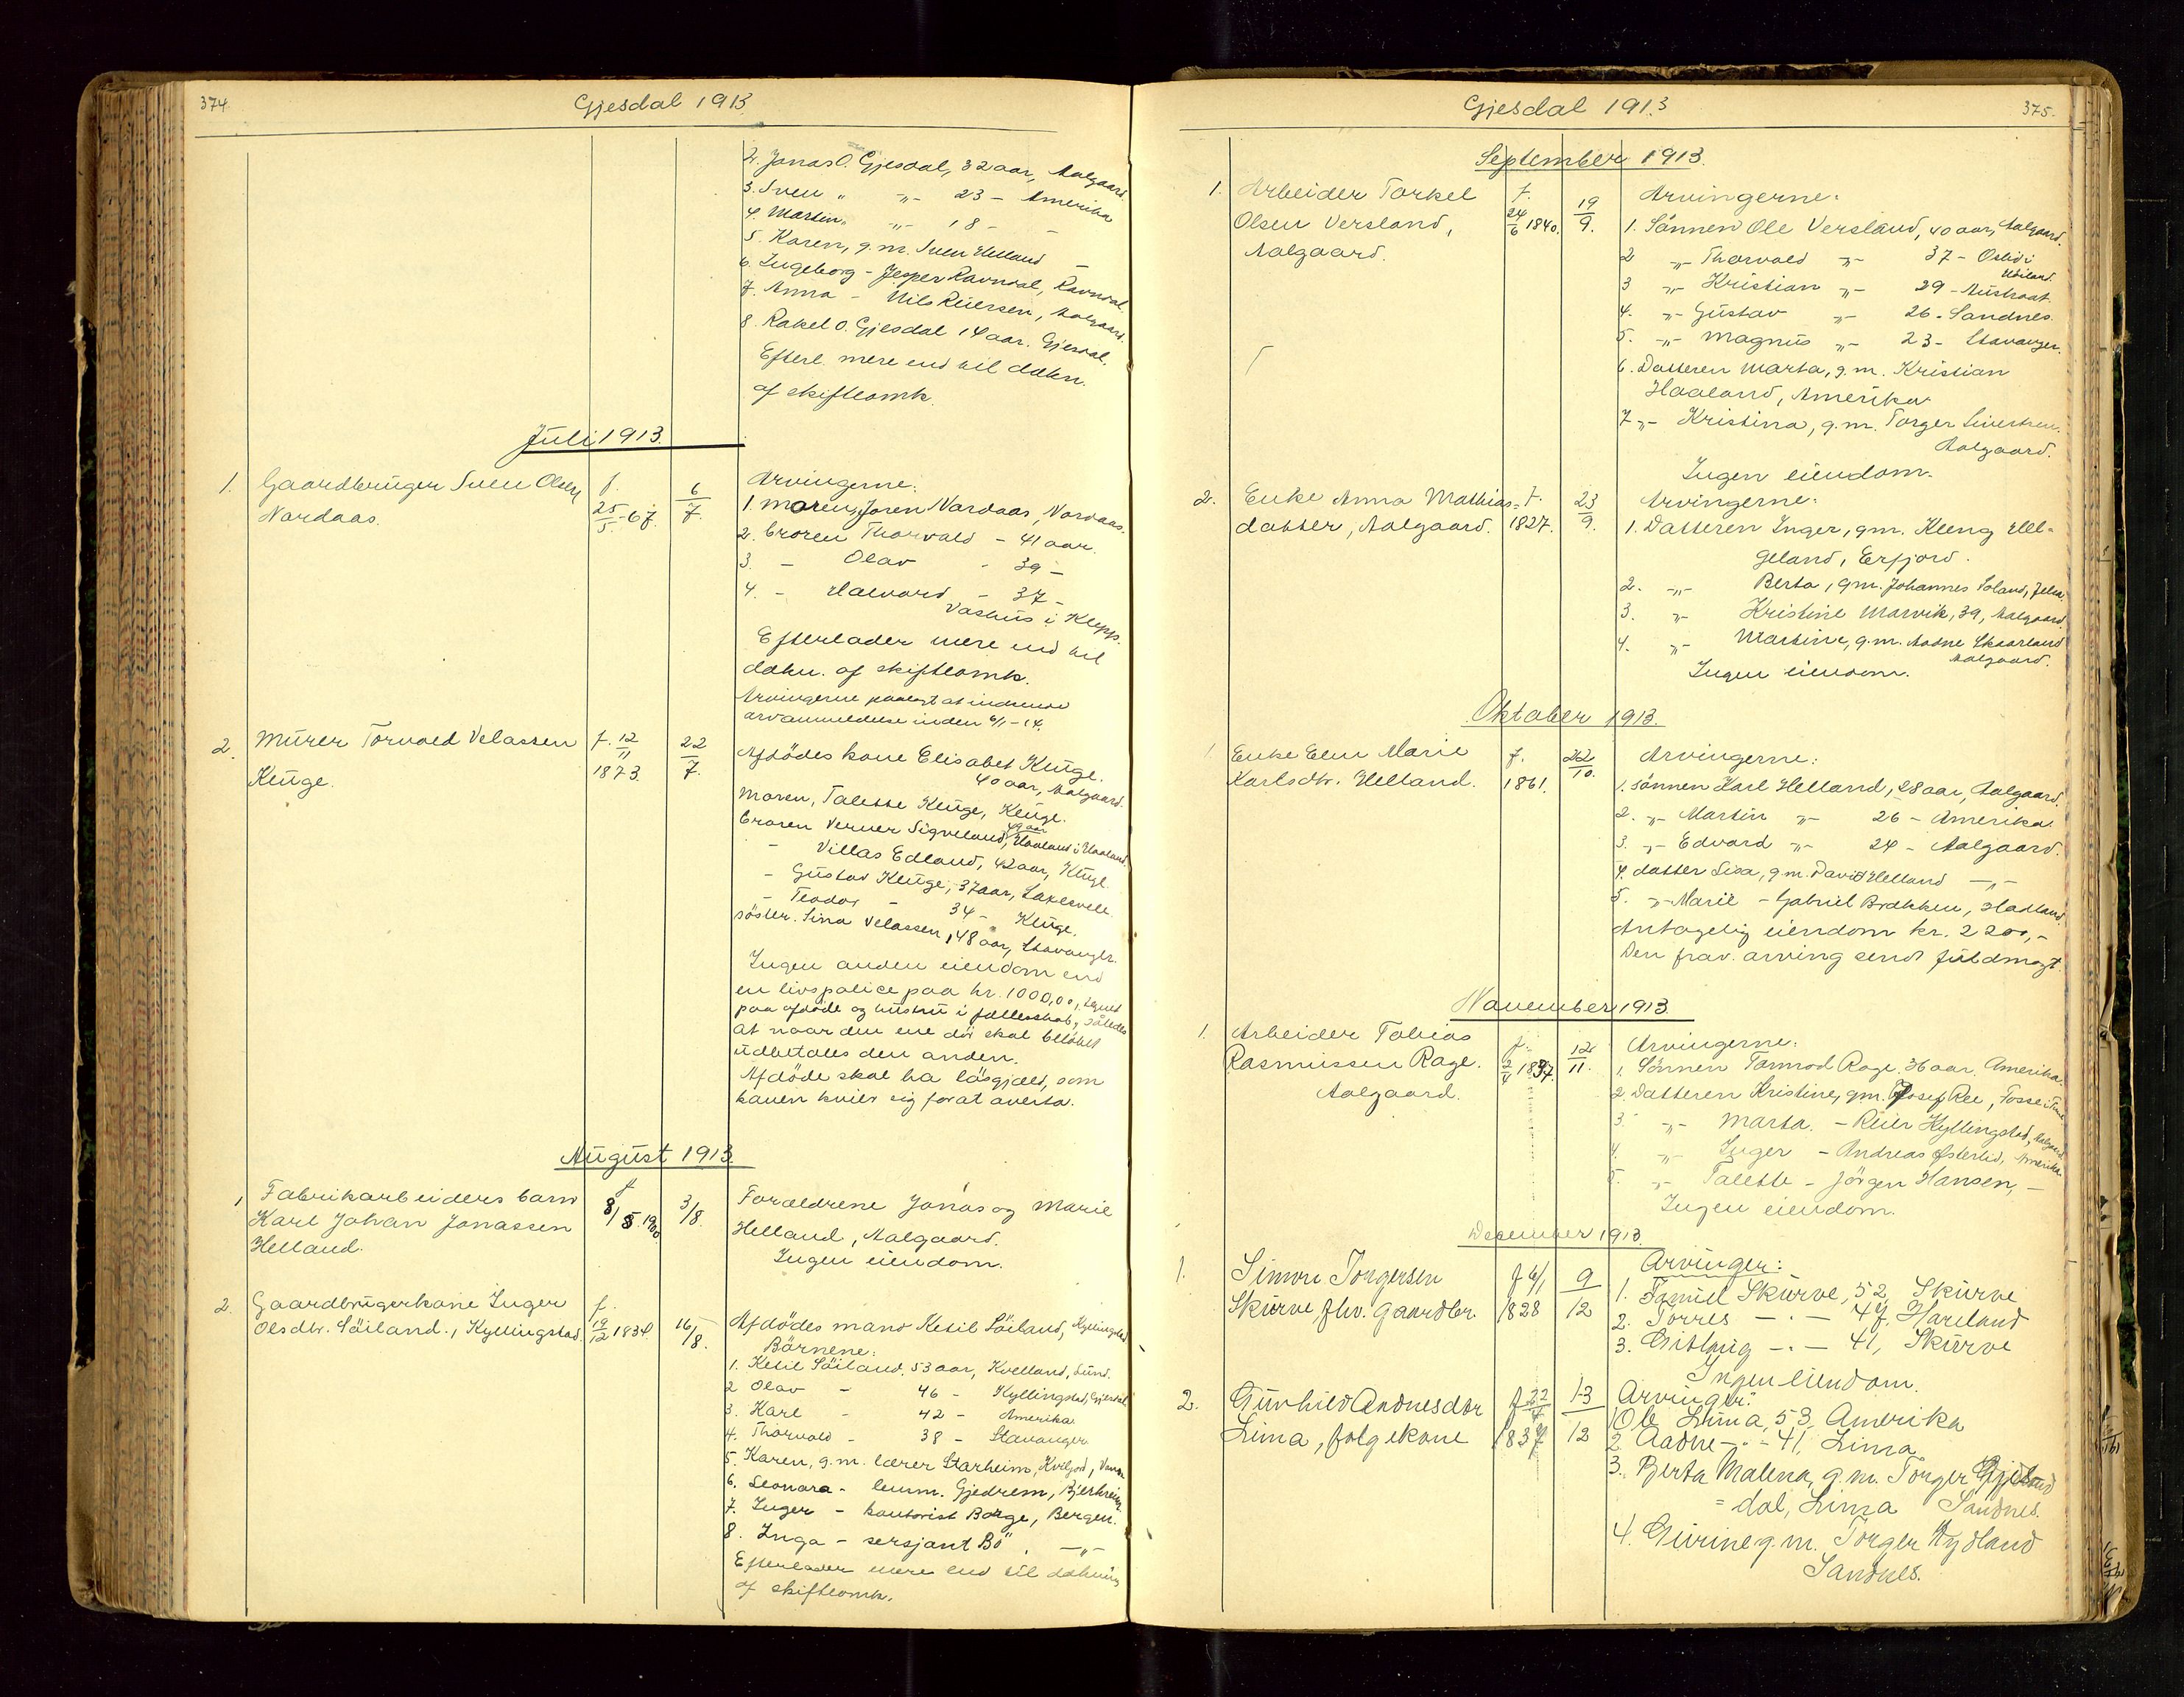 374.
Gjesdal 1913
2. Jonas O. Gjesdal, 32 aar, Aalgaard.
3. Sven " -"- 23 - Amerika
4. Martin " -"- 18 - -
5. Karen, g.m. Sven Helland -
6. Ingeborg - Jesper Ravndal, Ravndal.
7. Anna - Nils Reiersen, Aalgaard.
8. Rakel O. Gjesdal 14 aar. Gjesdal.
Efterl. mere end til dækn.
af skifteomk.
Juli 1913.
1. Gaardbruger Sven Olsen
Nordaas.
f.
25/5-67.
6/7.
Arvingerne:
1. Moren, Joren Nordaas, Nordaas.
2. Broren Thorvald - 41 aar.
3. - Olav - 39 -
4. - Halvard - 37 -
Vashus i Klepp.
Efterlader mere end til
dækn. af skifteomk.
Arvingerne paalagt at indsende
arvanmeldelse inden 6/1-14.
2. Murer Torvald Velassen
Kluge.
f. 12/11
1873.
22/7.
Afdödes kone Elisabet Kluge.
40 aar, Aalgaard.
Moren, Talette Kluge, Kluge.
Broren Verner Sigveland, 49 aar Haaland i Haaland.
- Villas Edland, 42 aar, Kluge.
- Gustav Kluge, 37 aar,
- Teodor - 34 - Kluge.
söster. Sina Velassen, 48 aar, Stavanger.
Ingen anden eiendom end
en livspolice paa kr. 1000,00, tegnet
paa afdöde og hustru i fællesskab, således
at naar den ene dör skal belöbet
udbetales den anden.
Afdöde skal ha lösgjæld, som
konen kvier sig for at overta.
August 1913.
1. Fabrikarbeiders barn
Karl Johan Jonassen
Helland.
f.
8/5 1900
3/8.
Forældrene Jonas og Marie
Helland, Aalgaard.
Ingen eiendom.
2. Gaardbrugerkone Inger
Olsdtr. Söiland., Kyllingstad.
f.
19/12 1834.
16/8.
Afdödes mand Ketil Söiland, Kyllingstad
Börnene:
1. Ketil Söiland, 53 aar, Kvelland, Lund.
2 Olav - 46 - Kyllingstad, Gjesdal
3. Karl - 42 - Amerika
4. Thorvald - 38 - Stavanger
5. Karen, g.m. lærer Starheim,
6. Leonora - lensm. Gjedrem, Bjerkreim.
7. Inger - kontorist Borge, Bergen.
8. Inga - sersjant Bö. -"-
Efterlader mere end til dækning
af skifteomk.
Gjesdal 1913
375.
September 1913.
1. Arbeider Torkel
Olsen Versland,
Aalgaard.
f.
24/6 1840.
19/9.
Arvingerne:
1. Sönnen Ole Versland, 40 aar, Aalgaard.
2 -"- Thorvald -"- 37 -
3 -"- Kristian -"- 29 - Austraat.
4. -"- Gustav -"- 26 - Sandnes.
5. -"- Magnus -"- 23 - Stavanger.
6. Datteren Marta, g.m. Kristian
Haaland, Amerika
7 -"- Kristina, g.m. Torger Sivertsen.
Aalgaard.
Ingen eiendom.
2. Enke Anna Mathias=
datter, Aalgaard.
f.
1827.
23/9.
Arvingerne:
1. Datteren Inger, gm. Kleng Hel-
geland, Erfjord.
2. -"- Berta, gm. Johannes Soland, Jelsa.
3. -"- Kristine Marvik, 39, Aalgaard.
4. -"- Martine, g.m. Aadne Skaarland
Aalgaard.
Ingen eiendom.
Oktober 1913.
1 Enke Elen Marie
Karlsdtr. Helland.
f.
1861.
22/10.
Arvingerne:
1. Sönnen Karl Helland, 28 aar, Aalgaard.
2. -"- Martin -"- 26 - Amerika.
3. -"- Edvard -"- 24 - Aalgaard.
4. datter Lisa, g.m. David Helland -"-
5. -"- Marie - Gabriel Brekken, Haaland.
Antagelig eiendom kr. 2200,-
Den frav. arving sendt fuldmagt.
November 1913.
1. Arbeider Tobias
Rasmussen Rage.
Aalgaard.
f.
2/4 1837.
12/11.
Arvingerne:
1. Sönnen Tormod Rage. 36 aar. Amerika.
2. Datteren Kristine, gm. Josef Ree, Fosse i Time
3. -"- Marta. - Reier Kyllingstad, Aalgaard
4. -"- Inger - Andreas Österlid, Amerika.
5. -"- Talette - Jörgen Hansen, -
Ingen eiendom.
December 1913.
1. Simon Torgersen
Skurve, fhv. gaardbr.
f 6/1
1828
9/12
Arvinger:
1. Samuel Skurve, 52, Skurve
2. Torres -"- 47, Hareland
3. Gitlaug -"- 41, Skurve
Ingen eiendom.
2. Gunhild Aadnesdtr
Lima, folgekone
f 22/4
1837
13/12
Arvinger:
1 Ole Lima, 53, Amerika
2. Aadne -"- 41, Lima
3. Berta Malena, g.m. Torger
= dal, Lima Sandnes.
4. Gurine g.m. Torger Hydland
Sandnes.